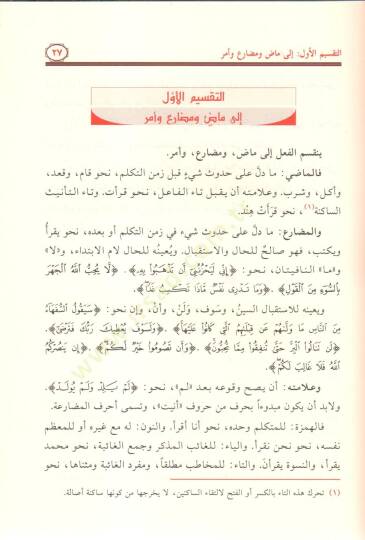 التقسيم الأول: إلى ماض ومضارع وأمر
٢٧
التقسيم الأول
إلى ماضٍ ومضارع وأمر
ينقسم الفعل إلى ماض، ومضارع، وأمر.
فالماضي: ما دلَّ على حدوث شيءٍ قبل زمن التكلم، نحو قام، وقعد،
وأكل، وشرب. وعلامته أن يقبل تاء الفاعل، نحو قرأت. وتاء التأنيث
الساكنة(١)، نحو قرَأتْ هِنْد.
والمضارع: ما دلَّ على حدوث شيء في زمن التكلم أو بعده، نحو يقرأُ
ويكتب، فهو صالحٌ للحال والاستقبال. ويُعيّنه للحال لام الابتداء، و«لا»
و«ما» النافيتان، نحو: ﴿إِنِّي لَيَحْزُنُنِي أَن تَذْهَبُوا بِهِ﴾. ﴿لَّا يُحِبُّ اللَّهُ الْجَهْرَ
بِالسُّوءِ مِنَ الْقَوْلِ﴾. ﴿وَمَا تَدْرِي نَفْسٌ مَّاذَا تَكْسِبُ غَدًا﴾.
ويعينه للاستقبال السينُ، وسَوف، وَلَنْ، وأنْ، وإن نحو: ﴿سَيَقُولُ السُّفَهَاءُ
مِنَ النَّاسِ مَا وَلَّاهُمْ عَن قِبْلَتِهِمُ الَّتِي كَانُوا عَلَيْهَا﴾. ﴿وَلَسَوْفَ يُعْطِيكَ رَبُّكَ فَتَرْضَى﴾.
﴿لَن تَنَالُوا الْبِرَّ حَتَّى تُنفِقُوا مِمَّا تُحِبُّونَ﴾. ﴿وَأَن تَصُومُوا خَيْرٌ لَّكُمْ﴾. ﴿إِن يَنصُرْكُمُ
اللَّهُ فَلَا غَالِبَ لَكُمْ﴾.
وعلامته: أن يصح وقوعه بعد «لم»، نحو: ﴿لَمْ يَلِدْ وَلَمْ يُولَدْ﴾.
ولابد أن يكون مبدوءاً بحرف من حروف «أنيت»، وتسمى أحرف المضارعة.
فالهمزة: للمتكلم وحده، نحو أنا أقرأ. والنون: له مع غيره أو للمعظم
نفسَه، نحو نحن نقرأ. والياء: للغائب المذكر وجمع الغائبة، نحو محمد
يقرأ، والنسوة يقرأن. والتاء: للمخاطب مطلقاً، ومفرد الغائبة ومثناها، نحو
(١) تحرك هذه التاء بالكسر أو الفتح لالتقاء الساكنين، لا يخرجها من كونها ساكنة أصالة.